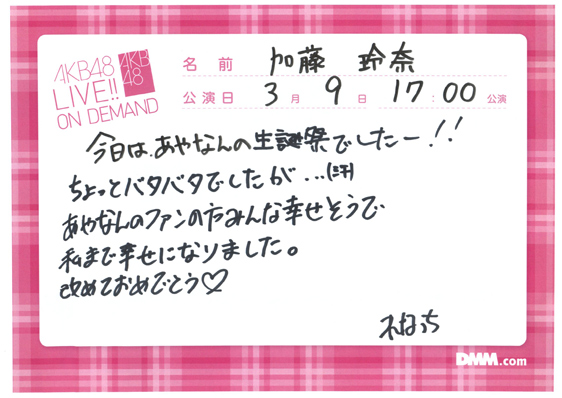 AKB48
LIVE!!
ON DEMAND
AKB
48
名前 加藤 玲奈
公演日 3月 9日 17:00 公演
今日は、あやなんの生誕祭でしたー!!
ちょっとバタバタでしたが...(汗)
あやなんのファンの方みんな幸せそうで
私まで幸せになりました。
改めておめでとう♡
れなっち
DMM.com